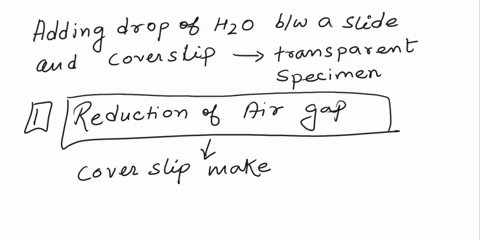 Adding drop of H2O b/w a slide
and coverslip → transparent
specimen
1 Reduction of Air gap
↓
coverslip make